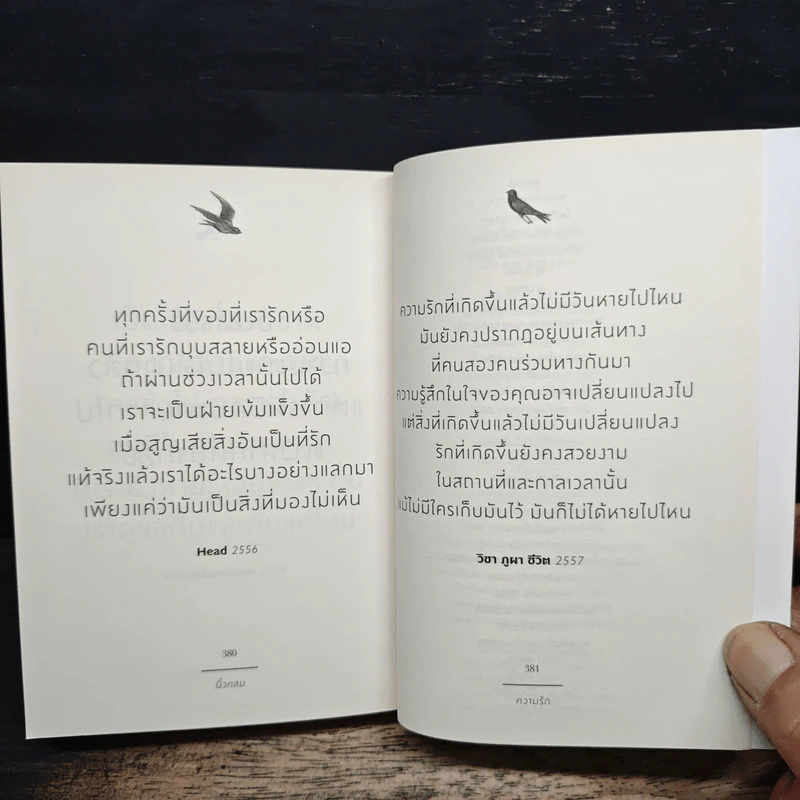 ทุกครั้งที่ของที่เรารักหรือ
คนที่เรารักบุบสลายหรืออ่อนแอ
ถ้าผ่านช่วงเวลานั้นไปได้
เราจะเป็นฝ่ายเข้มแข็งขึ้น
เมื่อสูญเสียสิ่งอันเป็นที่รัก
แท้จริงแล้วเราได้อะไรบางอย่างแลกมา
เพียงแค่ว่ามันเป็นสิ่งที่มองไม่เห็น
Head 2556
380
นิ้วกลม
ความรักที่เกิดขึ้นแล้วไม่มีวันหายไปไหน
มันยังคงปรากฏอยู่บนเส้นทาง
ที่คนสองคนร่วมทางกันมา
ความรู้สึกในใจของคุณอาจเปลี่ยนแปลงไป
แต่สิ่งที่เกิดขึ้นแล้วไม่มีวันเปลี่ยนแปลง
รักที่เกิดขึ้นยังคงสวยงาม
ในสถานที่และกาลเวลานั้น
แม้ไม่มีใครเก็บมันไว้ มันก็ไม่ได้หายไปไหน
วิชา ภูผา ชีวิต 2557
381
ความรัก